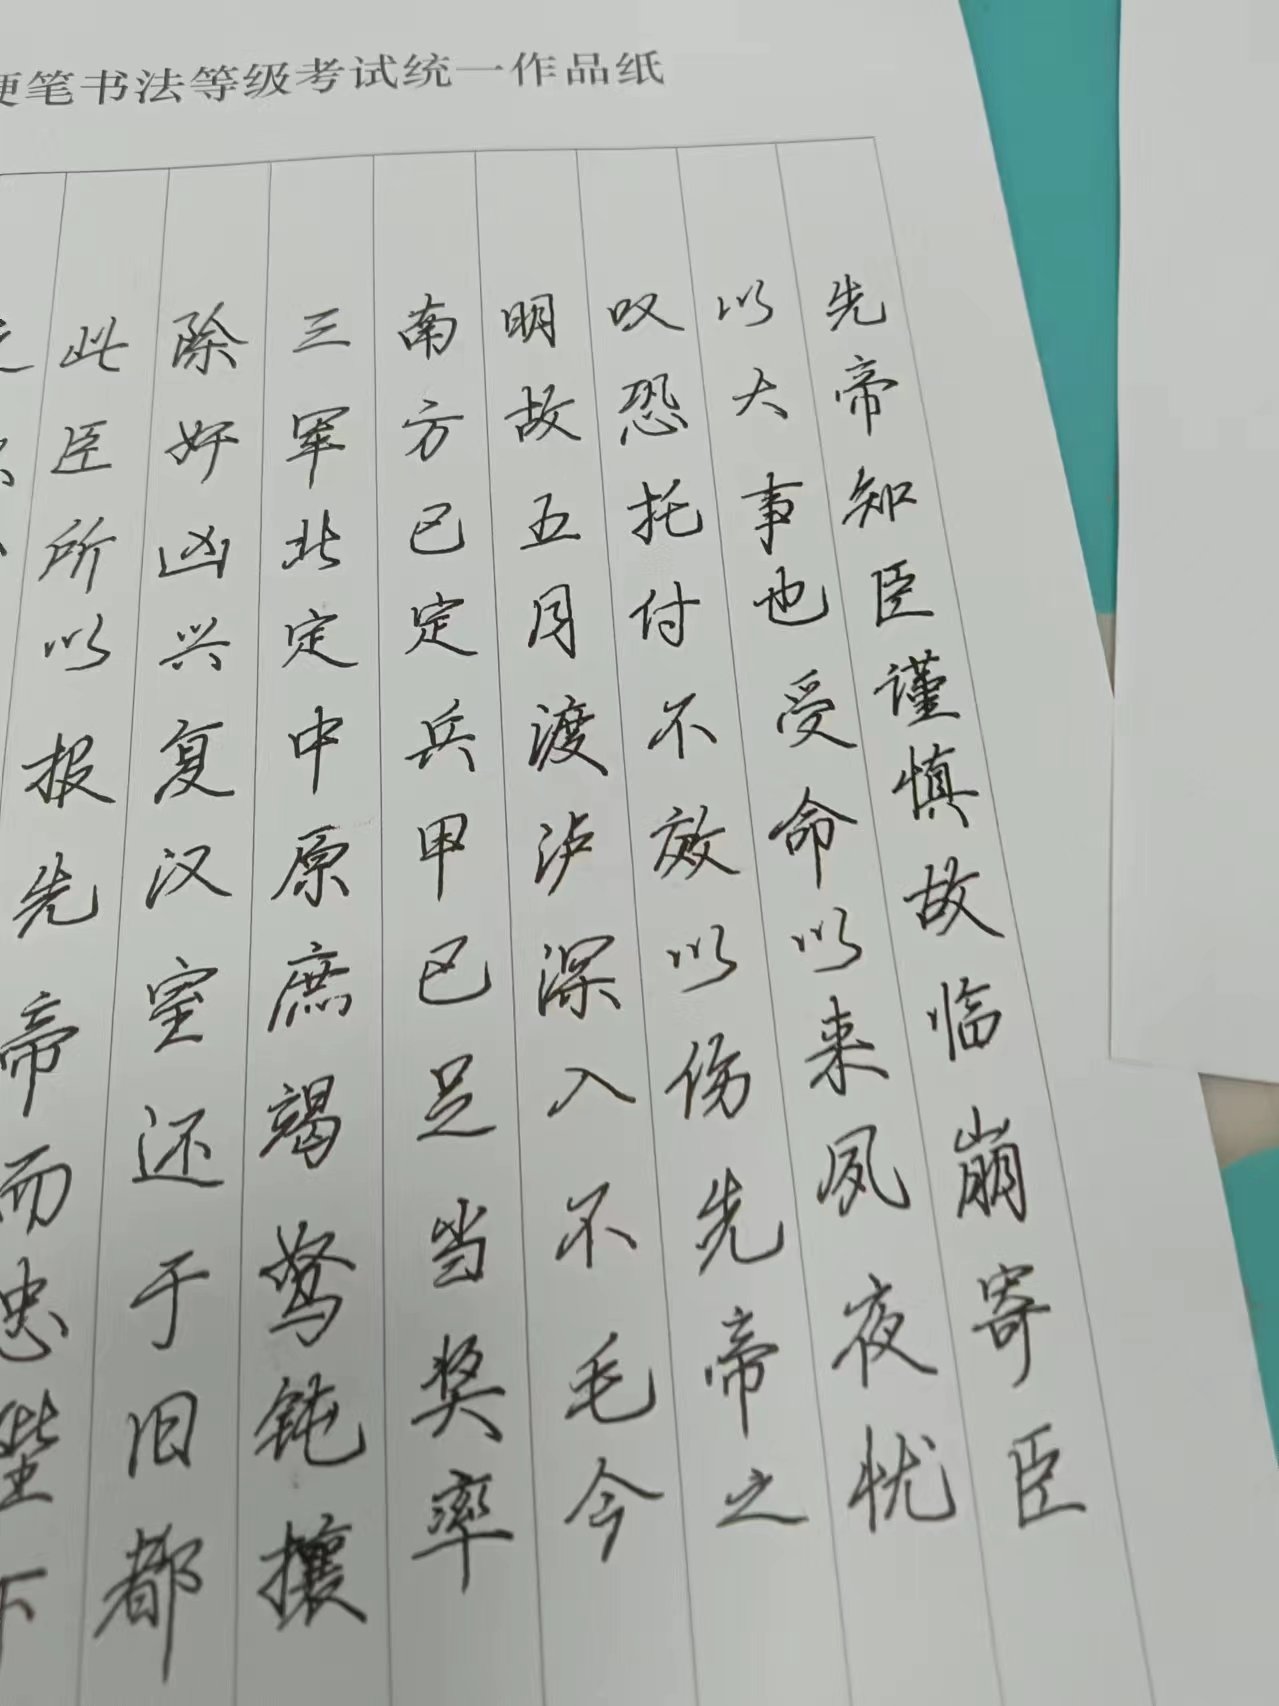 硬笔书法等级考试统一作品纸
先帝知臣谨慎故临崩寄臣
以大事也受命以来夙夜忧
叹恐托付不效以伤先帝之
明故五月渡泸深入不毛今
南方已定兵甲已足当奖率
三军北定中原庶竭驽钝攘
除奸凶兴复汉室还于旧都
此臣所以报先帝而忠陛下
之